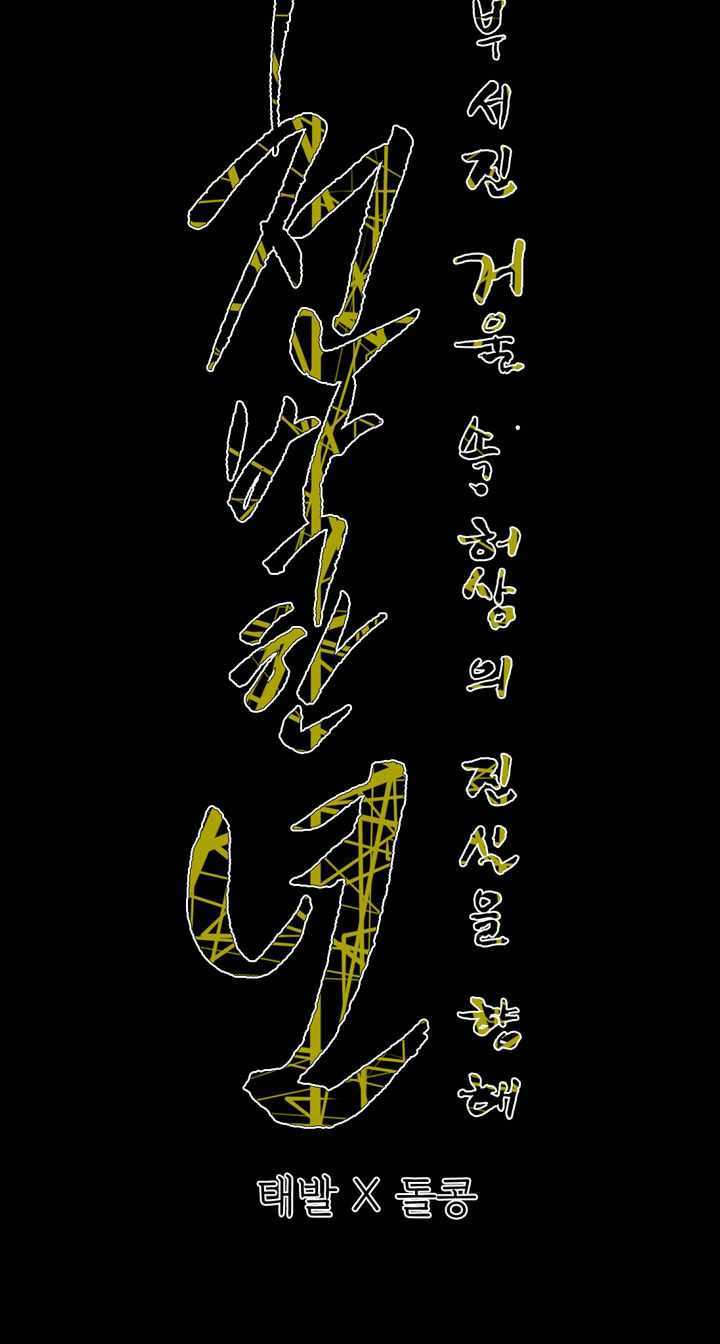 부서진 거울 속 허상의 진실을 향해
천박한 년
태발 X 돌콩